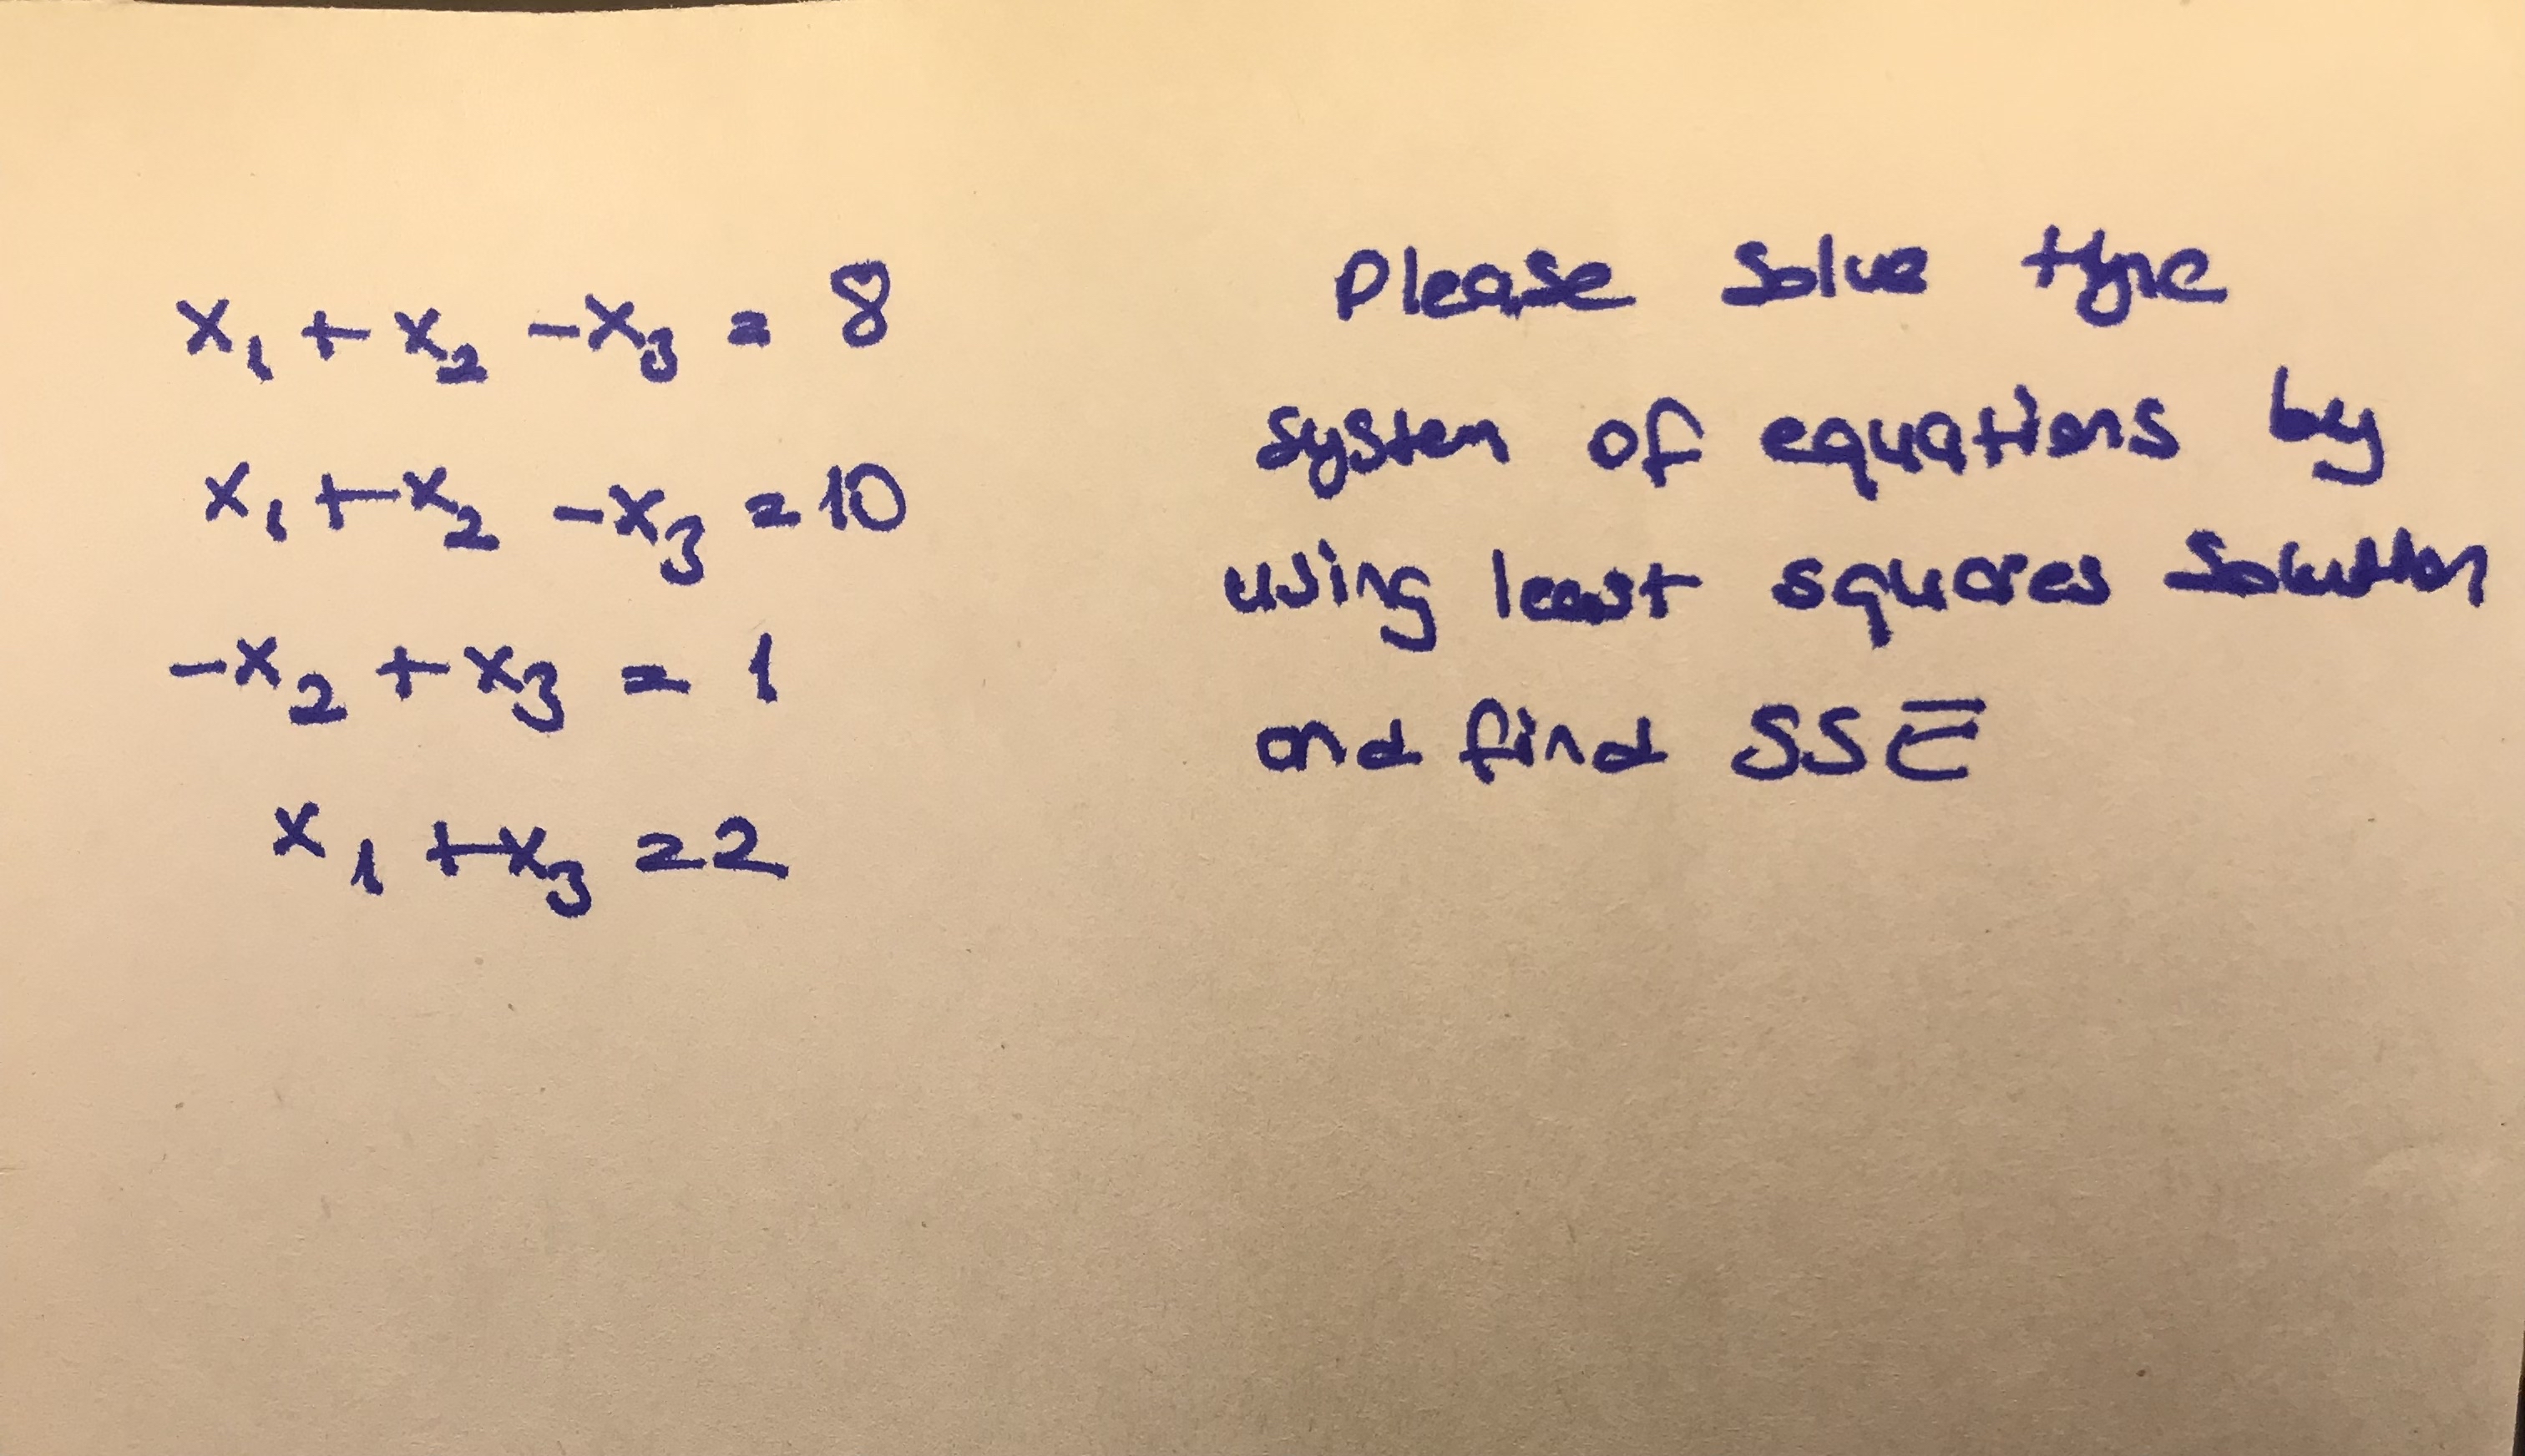 x₁ + x₂ - x₃ = 8
x₁ + x₂ - x₃ = 10
-x₂ + x₃ = 1
x₁ + x₃ = 2
Please solve the
system of equations by
using least squares solution
and find SSE